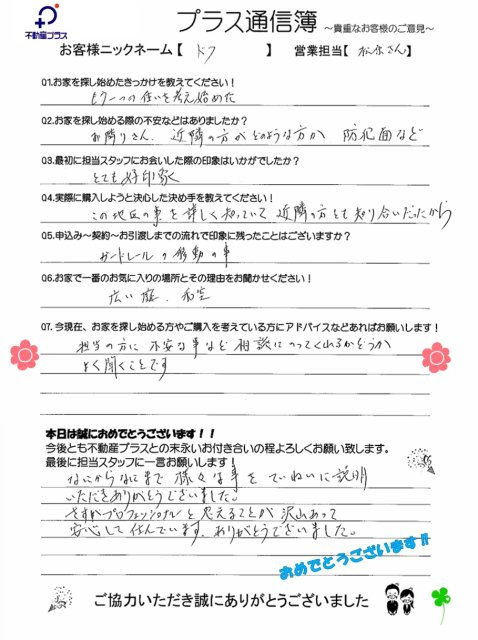 不動産プラス
プラス通信簿 ～貴重なお客様のご意見～
お客様ニックネーム【 】 営業担当【 松原さん 】
Q1.お家を探し始めたきっかけを教えてください！
もう一つの住いを考え始めた
Q2.お家を探し始める際の不安などはありましたか？
お隣りさん、近隣の方がどのような方か 防犯面など
Q3.最初に担当スタッフにお会いした際の印象はいかがでしたか？
とても好印象
Q4.実際に購入しようと決心した決め手を教えてください！
この地区の事を詳しく知っていて近隣の方とも知り合いだったから
Q5.申込み～契約～お引渡しまでの流れで印象に残ったことはございますか？
ガードレールの移動の事
Q6.お家で一番のお気に入りの場所とその理由をお聞かせください！
広い庭、和室
Q7.今現在、お家を探し始める方やご購入を考えている方にアドバイスなどあればお願いします！
担当の方に不安な事など相談にのってくれるかどうか
よく聞くことです
本日は誠におめでとうございます！！
今後とも不動産プラスとの末永いお付き合いの程よろしくお願い致します。
最後に担当スタッフに一言お願いします！
なにからなにまで様々な事をていねいに説明
いただきありがとうございました。
さすがプロフェッショナルと思えることが沢山あって
安心して住んでいます。ありがとうございました。
おめでとうございます!!
ご協力いただき誠にありがとうございました